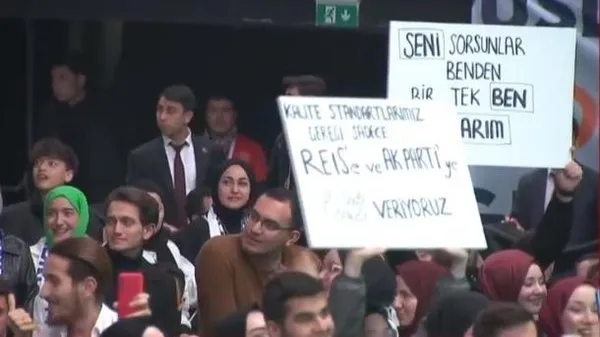 SENİ SORSUNLAR
BENDEN
BİR TEK BEN
ARIM
KALİTE STANDARTLARIMIZ
GEREĞİ SADECE
REİS'e ve AK PARTİ'ye
VERİYORUZ